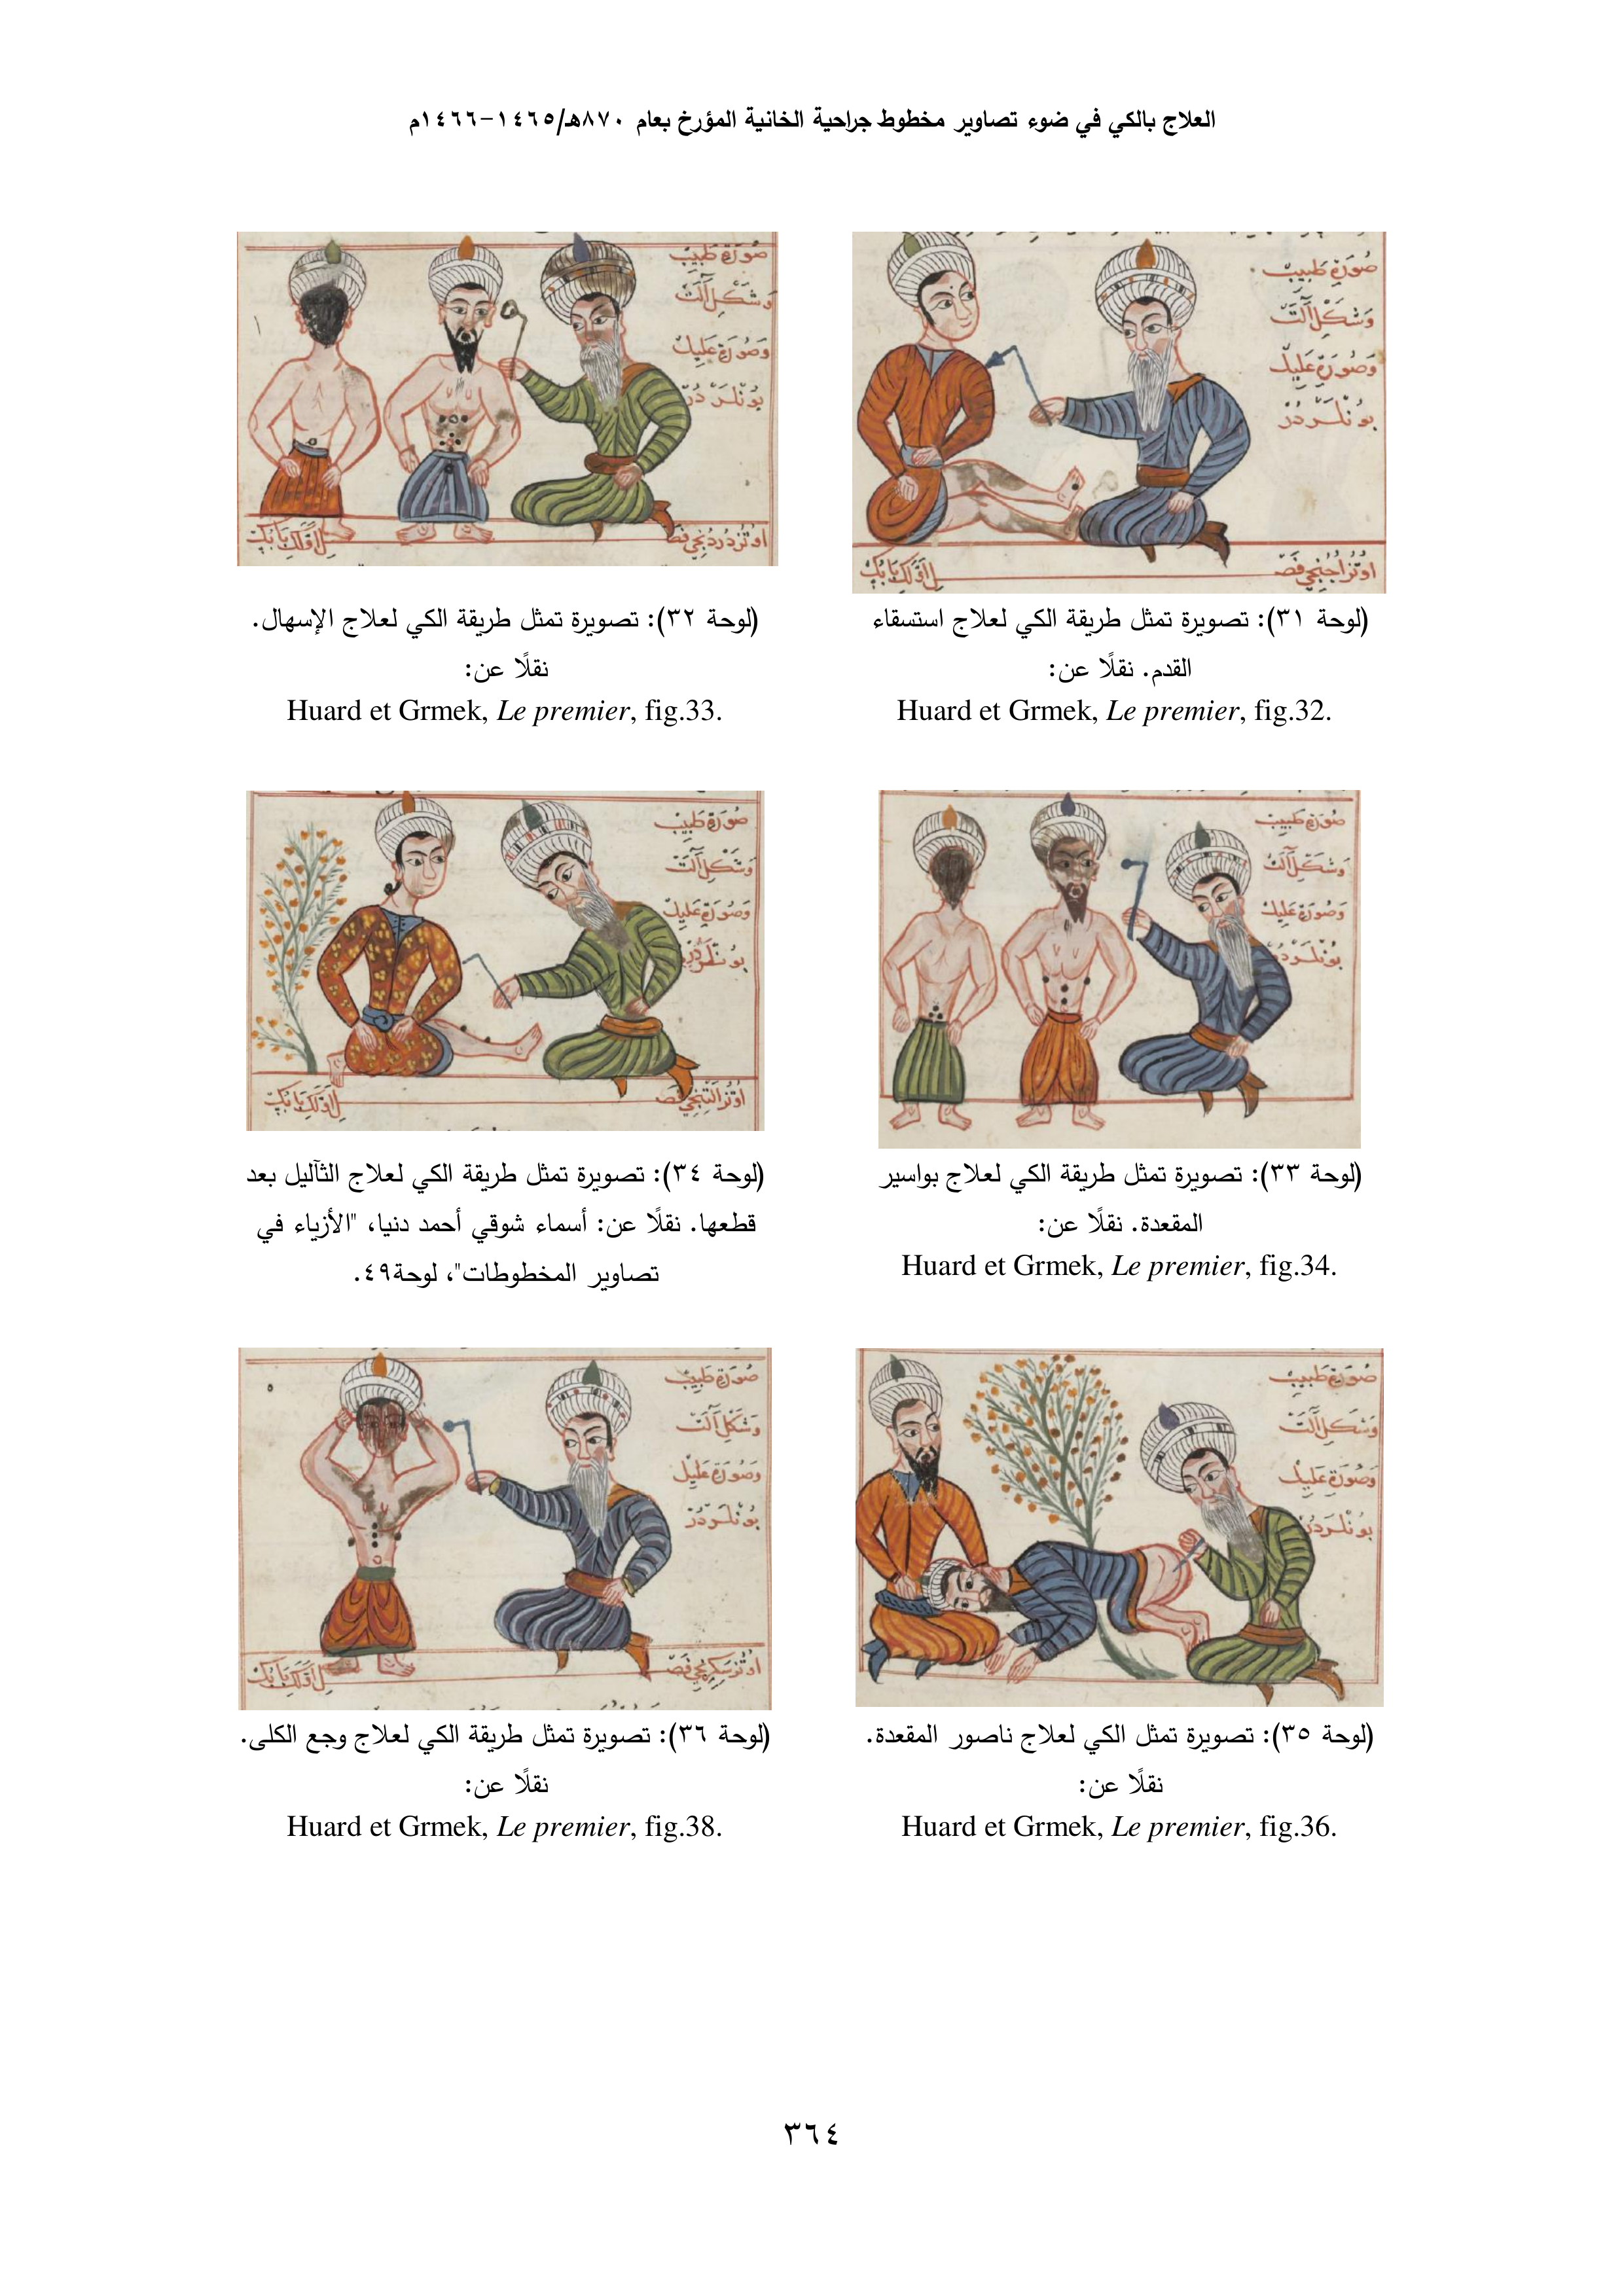 العلاج بالكي في ضوء تصاوير مخطوط جراحية الخانية المؤرخ بعام ٨٧٠هـ/١٤٦٥-١٤٦٦م
صورة طبيب
وشكل آلت
وصورة عليل
بونلردر
(لوحة ٣١): تصويرة تمثل طريقة الكي لعلاج استسقاء
القدم. نقلًا عن:
Huard et Grmek, Le premier, fig.32.
صورة طبيب
وشكل آلت
وصورة عليل
بونلردر
(لوحة ٣٢): تصويرة تمثل طريقة الكي لعلاج الإسهال.
نقلًا عن:
Huard et Grmek, Le premier, fig.33.
صورة طبيب
وشكل آلت
وصورة عليل
بونلردر
(لوحة ٣٣): تصويرة تمثل طريقة الكي لعلاج بواسير
المقعدة. نقلًا عن:
Huard et Grmek, Le premier, fig.34.
صورة طبيب
وشكل آلت
وصورة عليل
بونلردر
(لوحة ٣٤): تصويرة تمثل طريقة الكي لعلاج الثآليل بعد
قطعها. نقلًا عن: أسماء شوقي أحمد دنيا، "الأزياء في
تصاوير المخطوطات"، لوحة٤٩.
صورة طبيب
وشكل آلت
وصورة عليل
بونلردر
(لوحة ٣٥): تصويرة تمثل الكي لعلاج ناصور المقعدة.
نقلًا عن:
Huard et Grmek, Le premier, fig.36.
صورة طبيب
وشكل آلت
وصورة عليل
بونلردر
(لوحة ٣٦): تصويرة تمثل طريقة الكي لعلاج وجع الكلى.
نقلًا عن:
Huard et Grmek, Le premier, fig.38.
٣٦٤